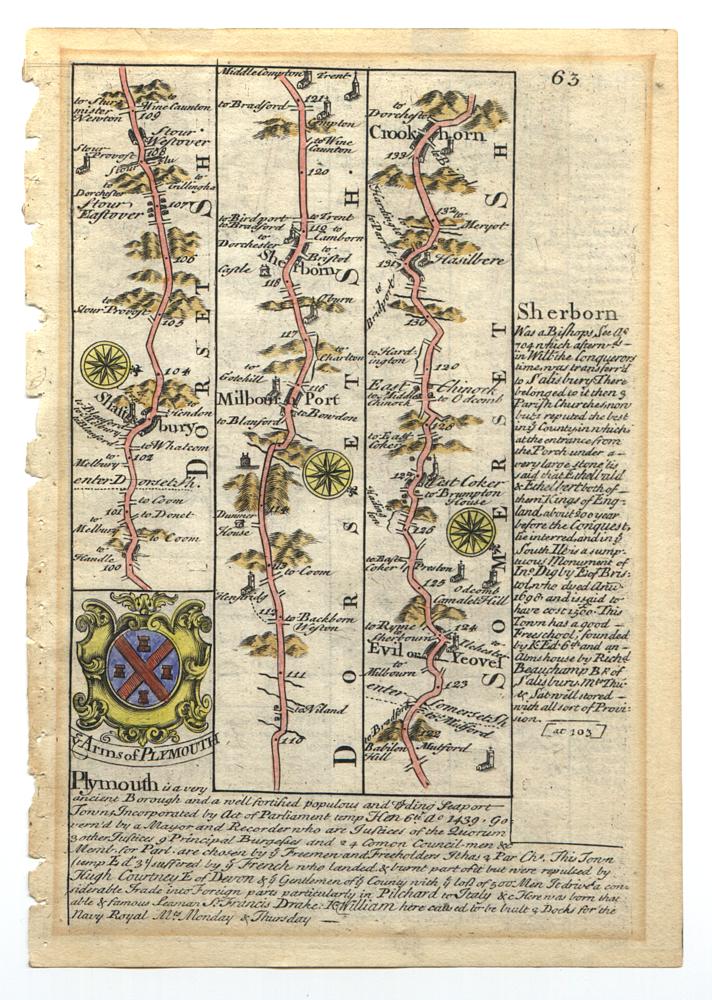 63
to Stur
mister
Newton
Wine Caunton
109
Stour
Westover
108
Stour
Provost
Stour Flu
to
Dorchester
to
Gillingha
Stour
Eastover
107
106
to
Stour Provost
105
104
Shaftsbury
to Hendon
to Whatcom
102
to
Melbury
enter Dorsetsh.
to Coom
101
to Donet
to
Melbury
to Coom
to
Handle
100
DORSETSH
Arms of PLYMOUTH
Middle Compton
Trent
to Bradford
121
Compton
to Wine
Caunton
120
to Birdport
to Bradford
to Trent
119 to
Camborn
to
Dorchester
to
Bristol
Sherborn
Castle
118
Oburn
117
to
Charlton
to
Gotehill
116
Milborn Port
to Bowdon
to Blanford
114
Dummer
House
113
to Coom
Henstridg
112
to Backborn
Weston
111
to Niland
110
DORSETSH.
to
Dorchester
Crookhorn
133
to Bridport
132
to
Meryot
131
Hasilbere
to
Bridport
130
to Hard-
ington
129
East Chinock
to Middle
Chinock
to Odcomb
128
to East
Coker
127
East Coker
to Brumpton
House
126
to East
Coker
Preston
125
Odcomb
Camalet Hill
124
to Ryme
to
Sherbourn
to
Ilchester
Evil or Yeovel
to
Milbourn
123
enter Somersetsh.
to Mutford
to Bradford
122
Babilon
Hill
Mutford
SOMERSETSH
Sherborn
Was a Bishops See Ao
704 which afterwds
in Will: the Conquerors
time was transferr'd
to Salisbury. There
belonged to it then 3
Parish Churches, now
but 1 reputed the best
in ye County, in which
at the entrance from
the Porch under a
very large stone 'tis
said that Ethelbald
& Ethelbert both of
them Kings of Eng-
land, about 200 year
before the Conquest,
lie interred, and in ye
South Ile is a sump-
tuous Monument of
Jno Digby E. of Bris-
tol who dyed Ano
1698 and is said to
have cost 1500. This
Town has a good
Freeschool, founded
by K. Ed. 6th and an
Almshouse by Richd
Beauchamp Bp of
Salisbury. Mts Thu:
& Sat well stored
with all sort of Provi-
sion.
at 103
Plymouth is a very
ancient Borough and a well fortified populous and trading Seaport
Town, Incorporated by Act of Parliament temp Hen 6th Ao 1439. Go
vern'd by a Mayor and Recorder who are Justices of the Quorum
2 other Justices 9 Principal Burgesses and 24 Comon Council-men &c
Memb. for Parl. are chosen by ye Freemen and Freeholders It has 2 Par Chs. This Town
(temp Ed. 3d) suffered by ye French who landed & burnt part of it but were repulsed by
Hugh Courtney E of Devon & ye Gentlemen of ye County with ye loss of 500 Men It drives a con-
siderable Trade into Foreign parts particularly in Pilchard to Italy &c Here was born that
able & famous Seaman Sr Francis Drake. K. William here caused to be built 2 Docks for the
Navy Royal Mts Monday & Thursday